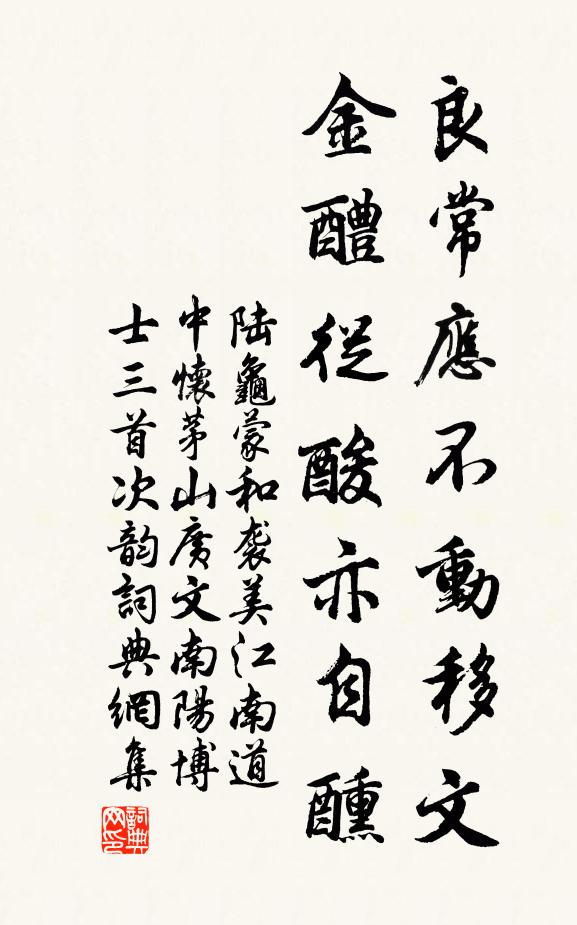 良常應不動移文
金醴從酸亦自醺
陆龜蒙和袭美江南道
中懷茅山廣文南陽博
士三首次韵詞典網集
詞典网印